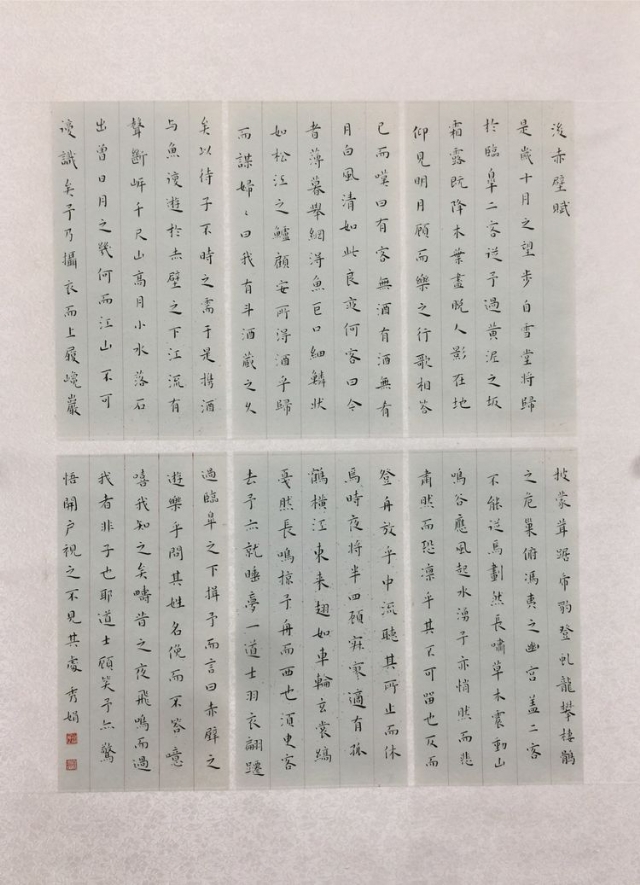 後赤壁賦
是歲十月之望步自雪堂将歸
於臨皋二客從予過黄泥之坂
霜露既降木葉盡脱人影在地
仰見明月顧而樂之行歌相答
已而嘆曰有客無酒有酒無肴
月白風清如此良夜何客曰今
者薄暮舉網得魚巨口細鱗狀
如松江之鱸顧安所得酒乎歸
而謀婦〻曰我有斗酒藏之久
矣以待子不時之需于是携酒
与魚復遊於赤壁之下江流有
聲斷岸千尺山高月小水落石
出曾日月之幾何而江山不可
復識矣予乃攝衣而上履巉巖
披蒙茸踞虎豹登虬龍攀棲鶻
之危巢俯馮夷之幽宫盖二客
不能從焉劃然長嘯草木震動山
鳴谷應風起水湧予亦悄然而悲
肅然而恐凛乎其不可留也反而
登舟放乎中流聽其所止而休
焉時夜将半四顧寂寥適有孤
鶴横江東来翅如車輪玄裳縞
戛然長鳴掠予舟而西也須臾客
去予亦就睡夢一道士羽衣翩躚
過臨皋之下揖予而言曰赤壁之
遊樂乎問其姓名俛而不答噫
嘻我知之矣疇昔之夜飛鳴而過
我者非子也耶道士顧笑予亦驚
悟開户視之不見其處 秀娟